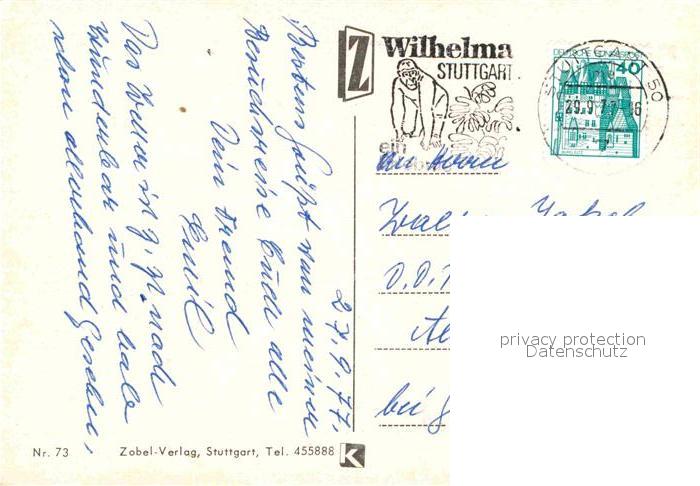 Wilhelma
STUTTGART
ein
DEUTSCHE BUNDESPOST
40
STUTTGART 50
29.9.77-16
27.9.77.
Bestens grüßt von meiner
Besuchsreise Euch alle
Dein Freund
Emil
Das Wetter ist z. Zt. noch
wunderbar und habe
schon allerhand gesehen,
An Herrn
bei
privacy protection
Datenschutz
Nr. 73
Zobel-Verlag, Stuttgart, Tel. 455888
K